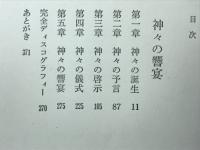 目次
神々の響宴
第一章 神々の誕生 11
第二章 神々の予言 87
第三章 神々の啓示 105
第四章 神々の儀式 225
第五章 神々の響宴 275
完全ディスコグラフィー 270
あとがき 371